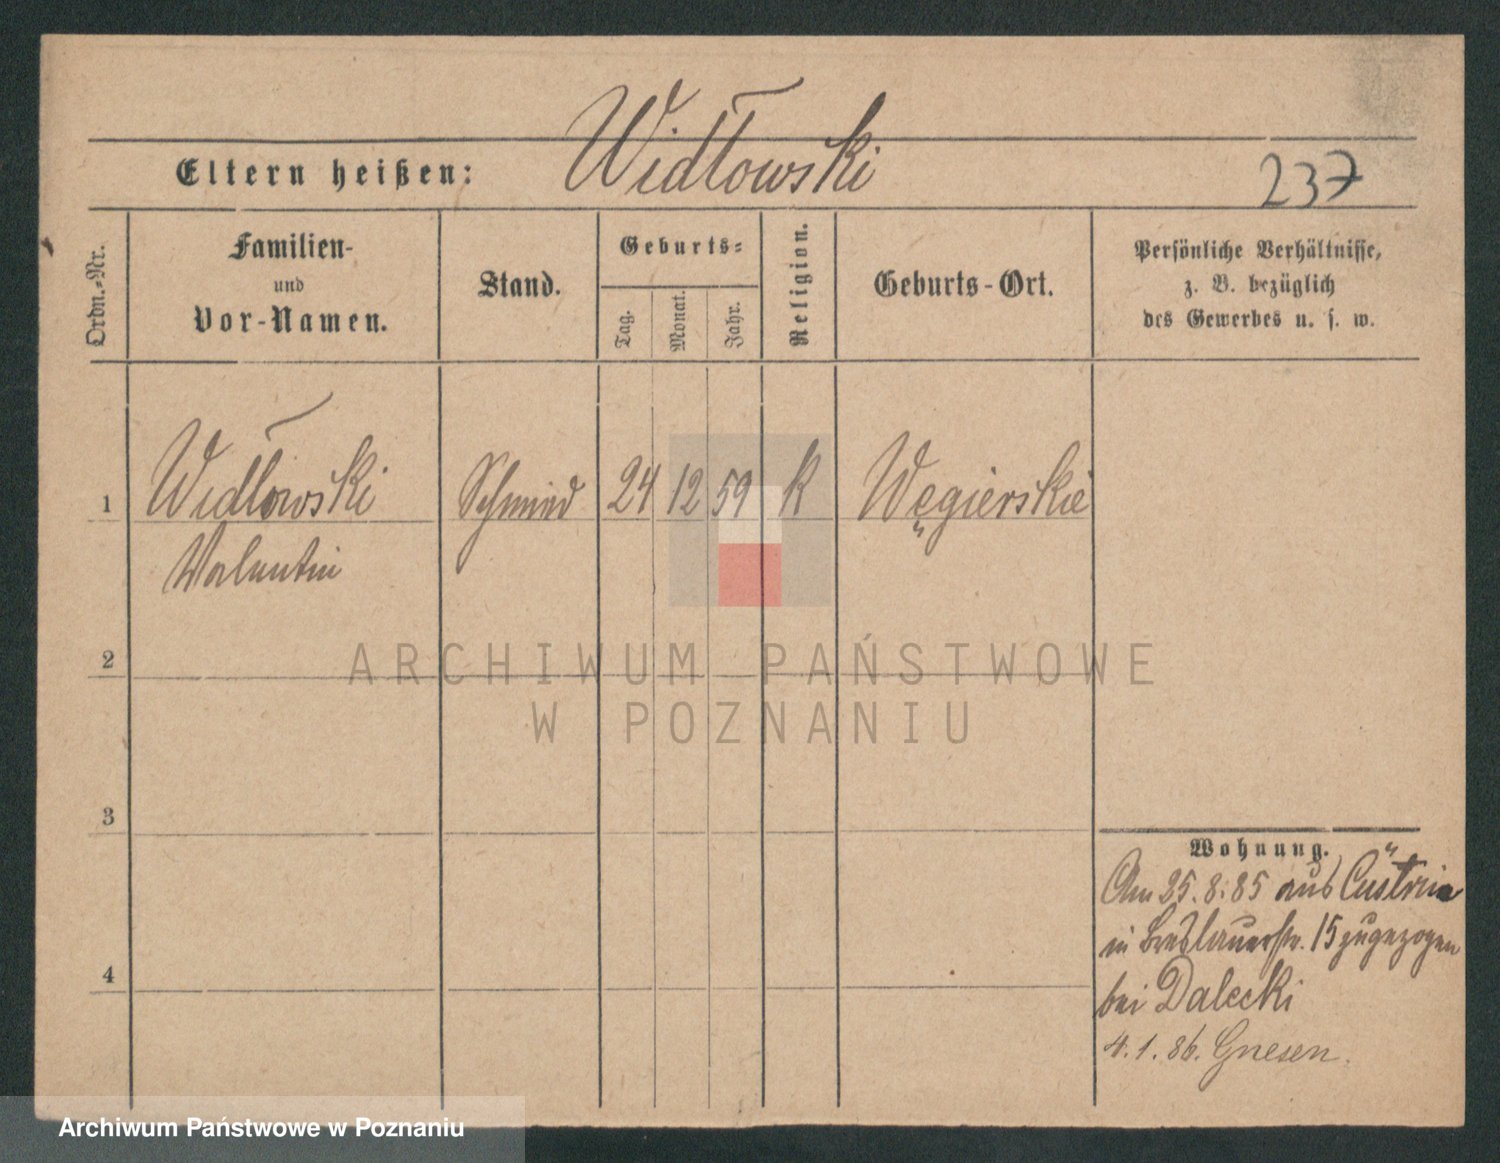 Widłowski
Eltern heißen:
237
Ordn.-Nr.
Familien-
und
Vor-Namen.
Stand.
Geburts-
Tag.
Monat.
Jahr.
Religion.
Geburts-Ort.
Persönliche Verhältnisse,
z. B. bezüglich
des Gewerbes u. s. w.
1
Widłowski
Schmied
24
12
59
k
Węgierskie
Valentin
2
ARCHIWUM PAŃSTWOWE
W POZNANIU
3
Wohnung.
Am 25.8.85 aus Cüstrin
in Breslauerstr. 15 zugezogen
bei Dalecki
4
4.1.86. Gnesen.
Archiwum Państwowe w Poznaniu